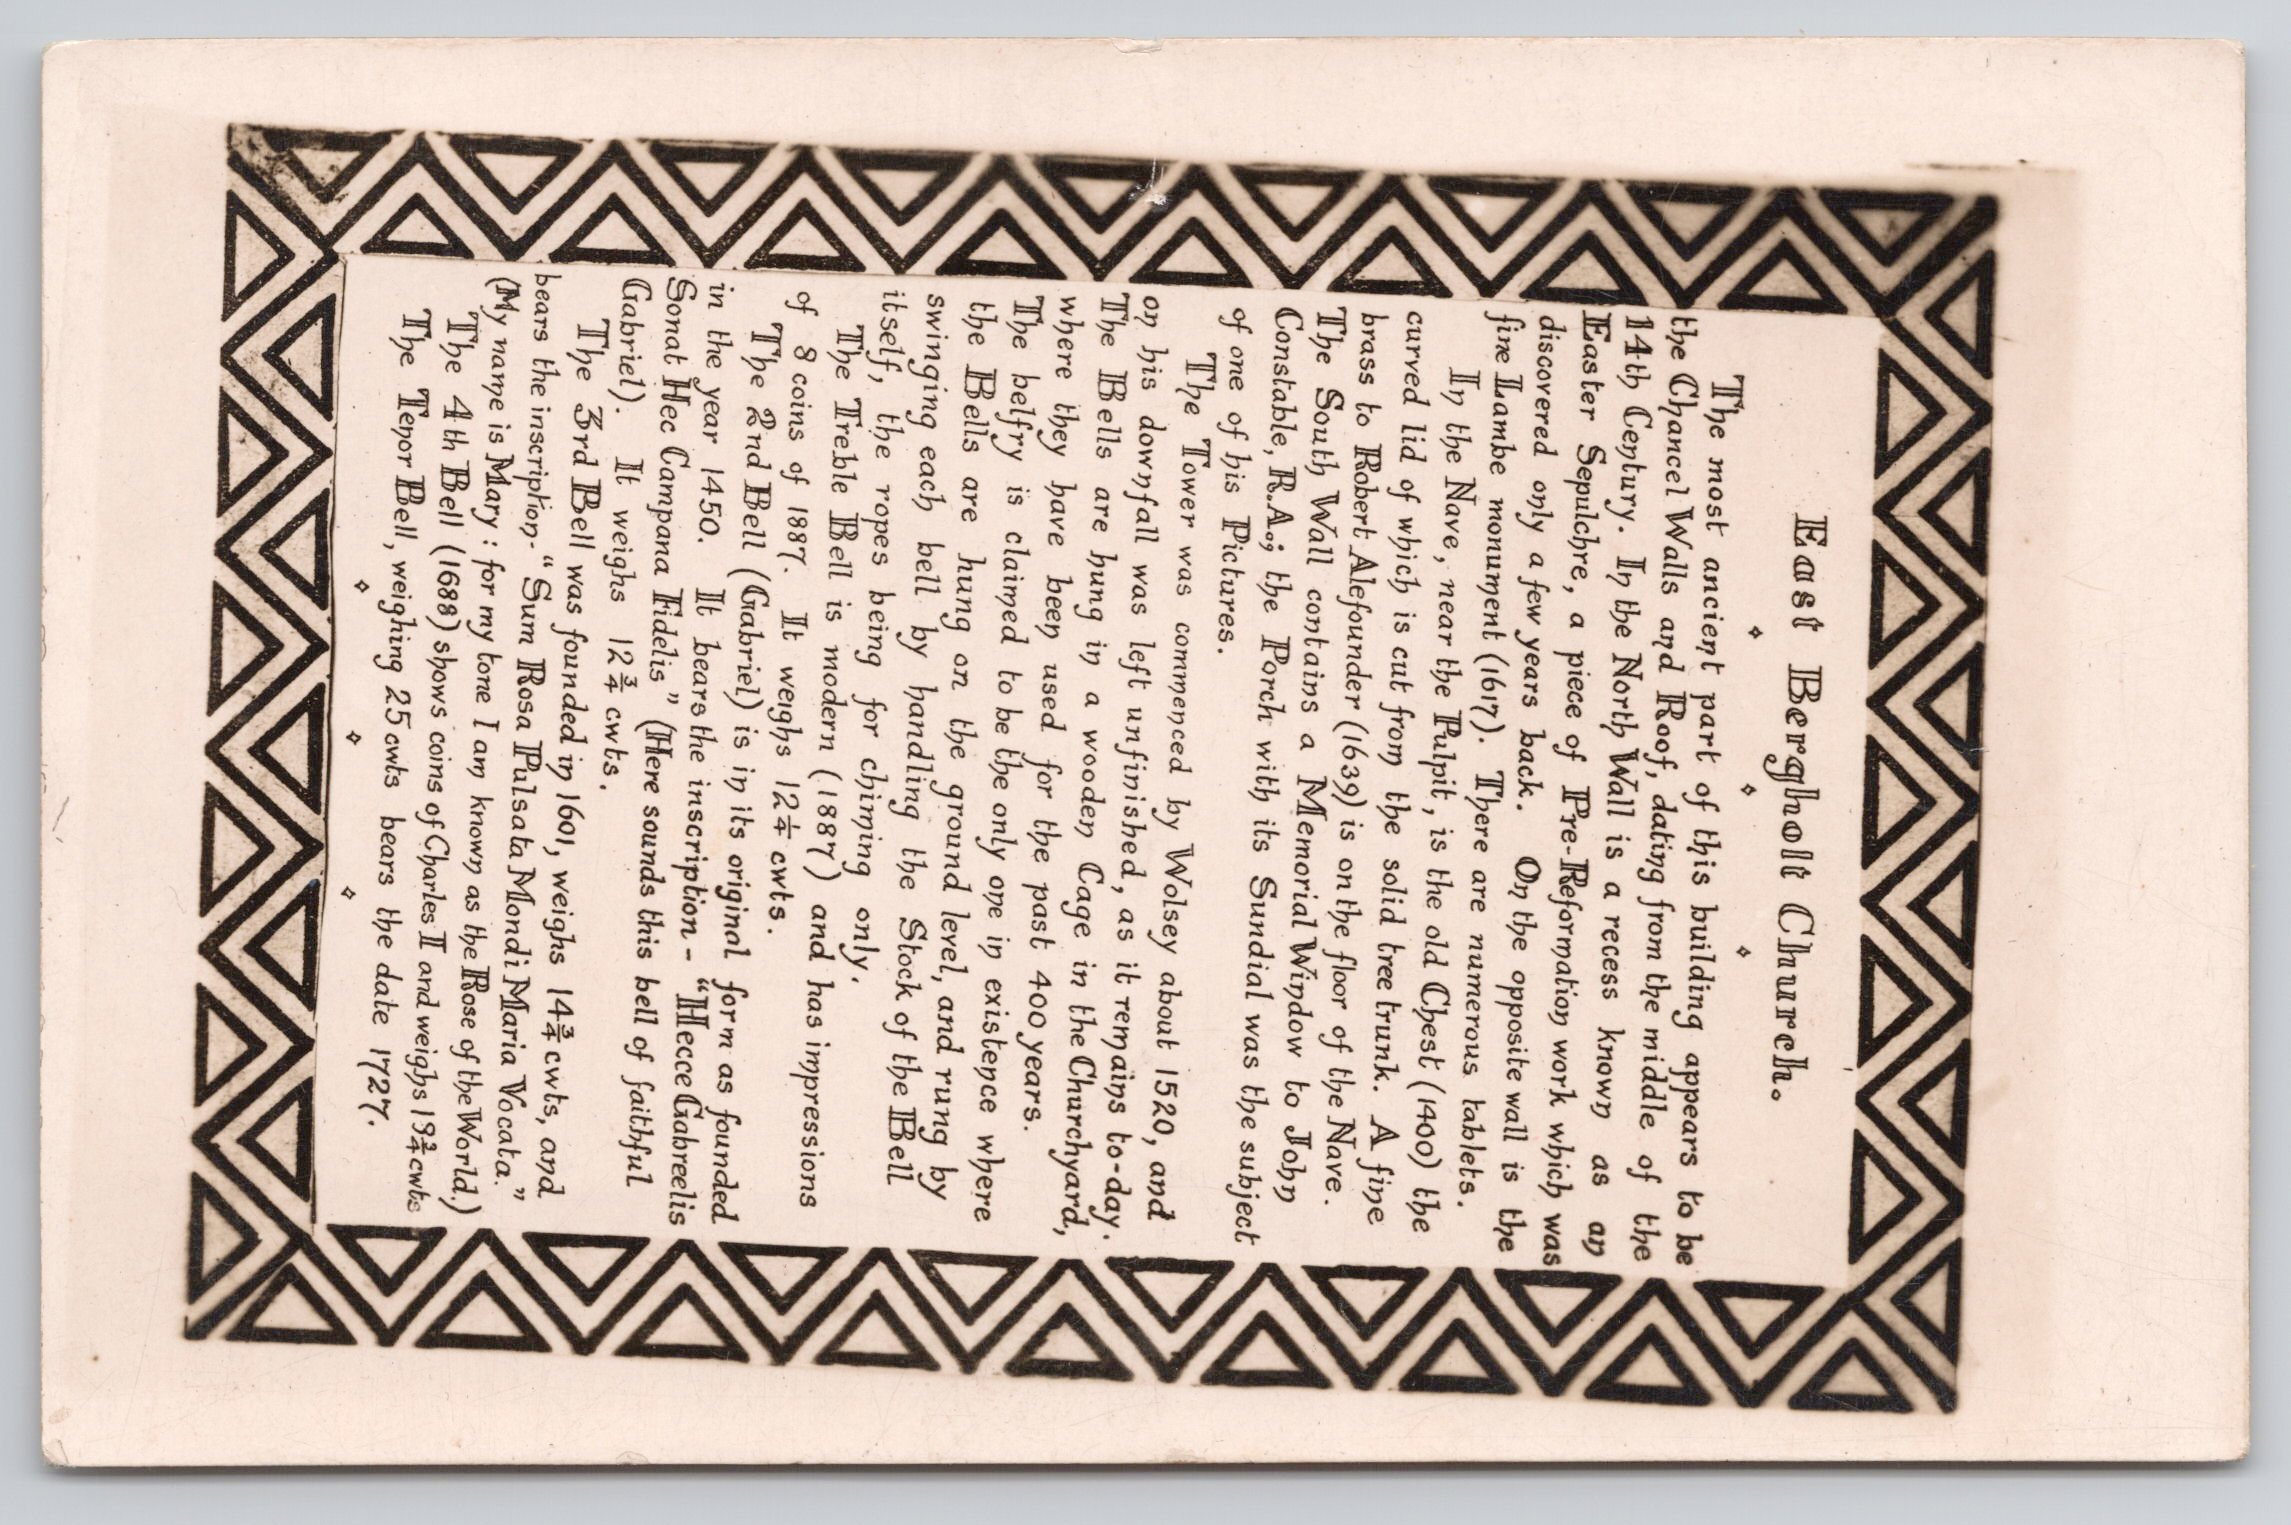 East Bergholt Church.
The most ancient part of this building appears to be
the Chancel Walls and Roof, dating from the middle of the
14th Century. In the North Wall is a recess known as an
Easter Sepulchre, a piece of Pre-Reformation work which was
discovered only a few years back. On the opposite wall is the
fine Lambe monument (1617). There are numerous tablets.
In the Nave, near the Pulpit, is the old Chest (1400) the
curved lid of which is cut from the solid tree trunk. A fine
brass to Robert Alefounder (1639) is on the floor of the Nave.
The South Wall contains a Memorial Window to John
Constable, R.A.; the Porch with its Sundial was the subject
of one of his Pictures.
The Tower was commenced by Wolsey about 1520, and
on his downfall was left unfinished, as it remains to-day.
The Bells are hung in a wooden Cage in the Churchyard,
where they have been used for the past 400 years.
The belfry is claimed to be the only one in existence where
the Bells are hung on the ground level, and rung by
swinging each bell by handling the Stock of the Bell
itself, the ropes being for chiming only.
The Treble Bell is modern (1887) and has impressions
of 8 coins of 1887. It weighs 12¼ cwts.
The 2nd Bell (Gabriel) is in its original form as founded
in the year 1450. It bears the inscription - "Hecce Gabreelis
Sonat Hec Campana Fidelis" (Here sounds this bell of faithful
Gabriel). It weighs 12¾ cwts.
The 3rd Bell was founded in 1601, weighs 14¾ cwts, and
bears the inscription- "Sum Rosa Pulsata Mondi Maria Vocata."
(My name is Mary: for my tone I am known as the Rose of the World.)
The 4th Bell (1688) shows coins of Charles II and weighs 19¾ cwts
The Tenor Bell, weighing 25 cwts bears the date 1727.